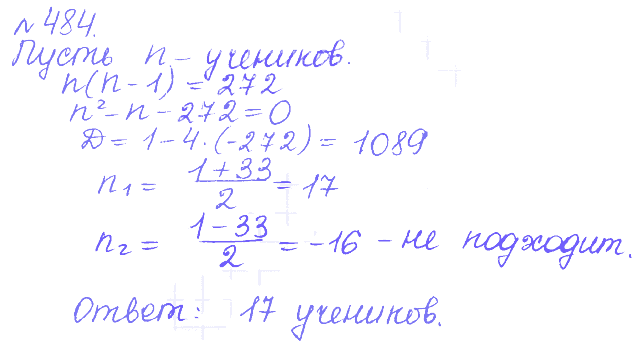 № 484.
Пусть n – учеников.
n(n – 1) = 272
n² – n – 272 = 0
Д = 1 – 4·(–272) = 1089
n₁ = (1 + 33)/2 = 17
n₂ = (1 – 33)/2 = –16 – не подходит.
Ответ: 17 учеников.